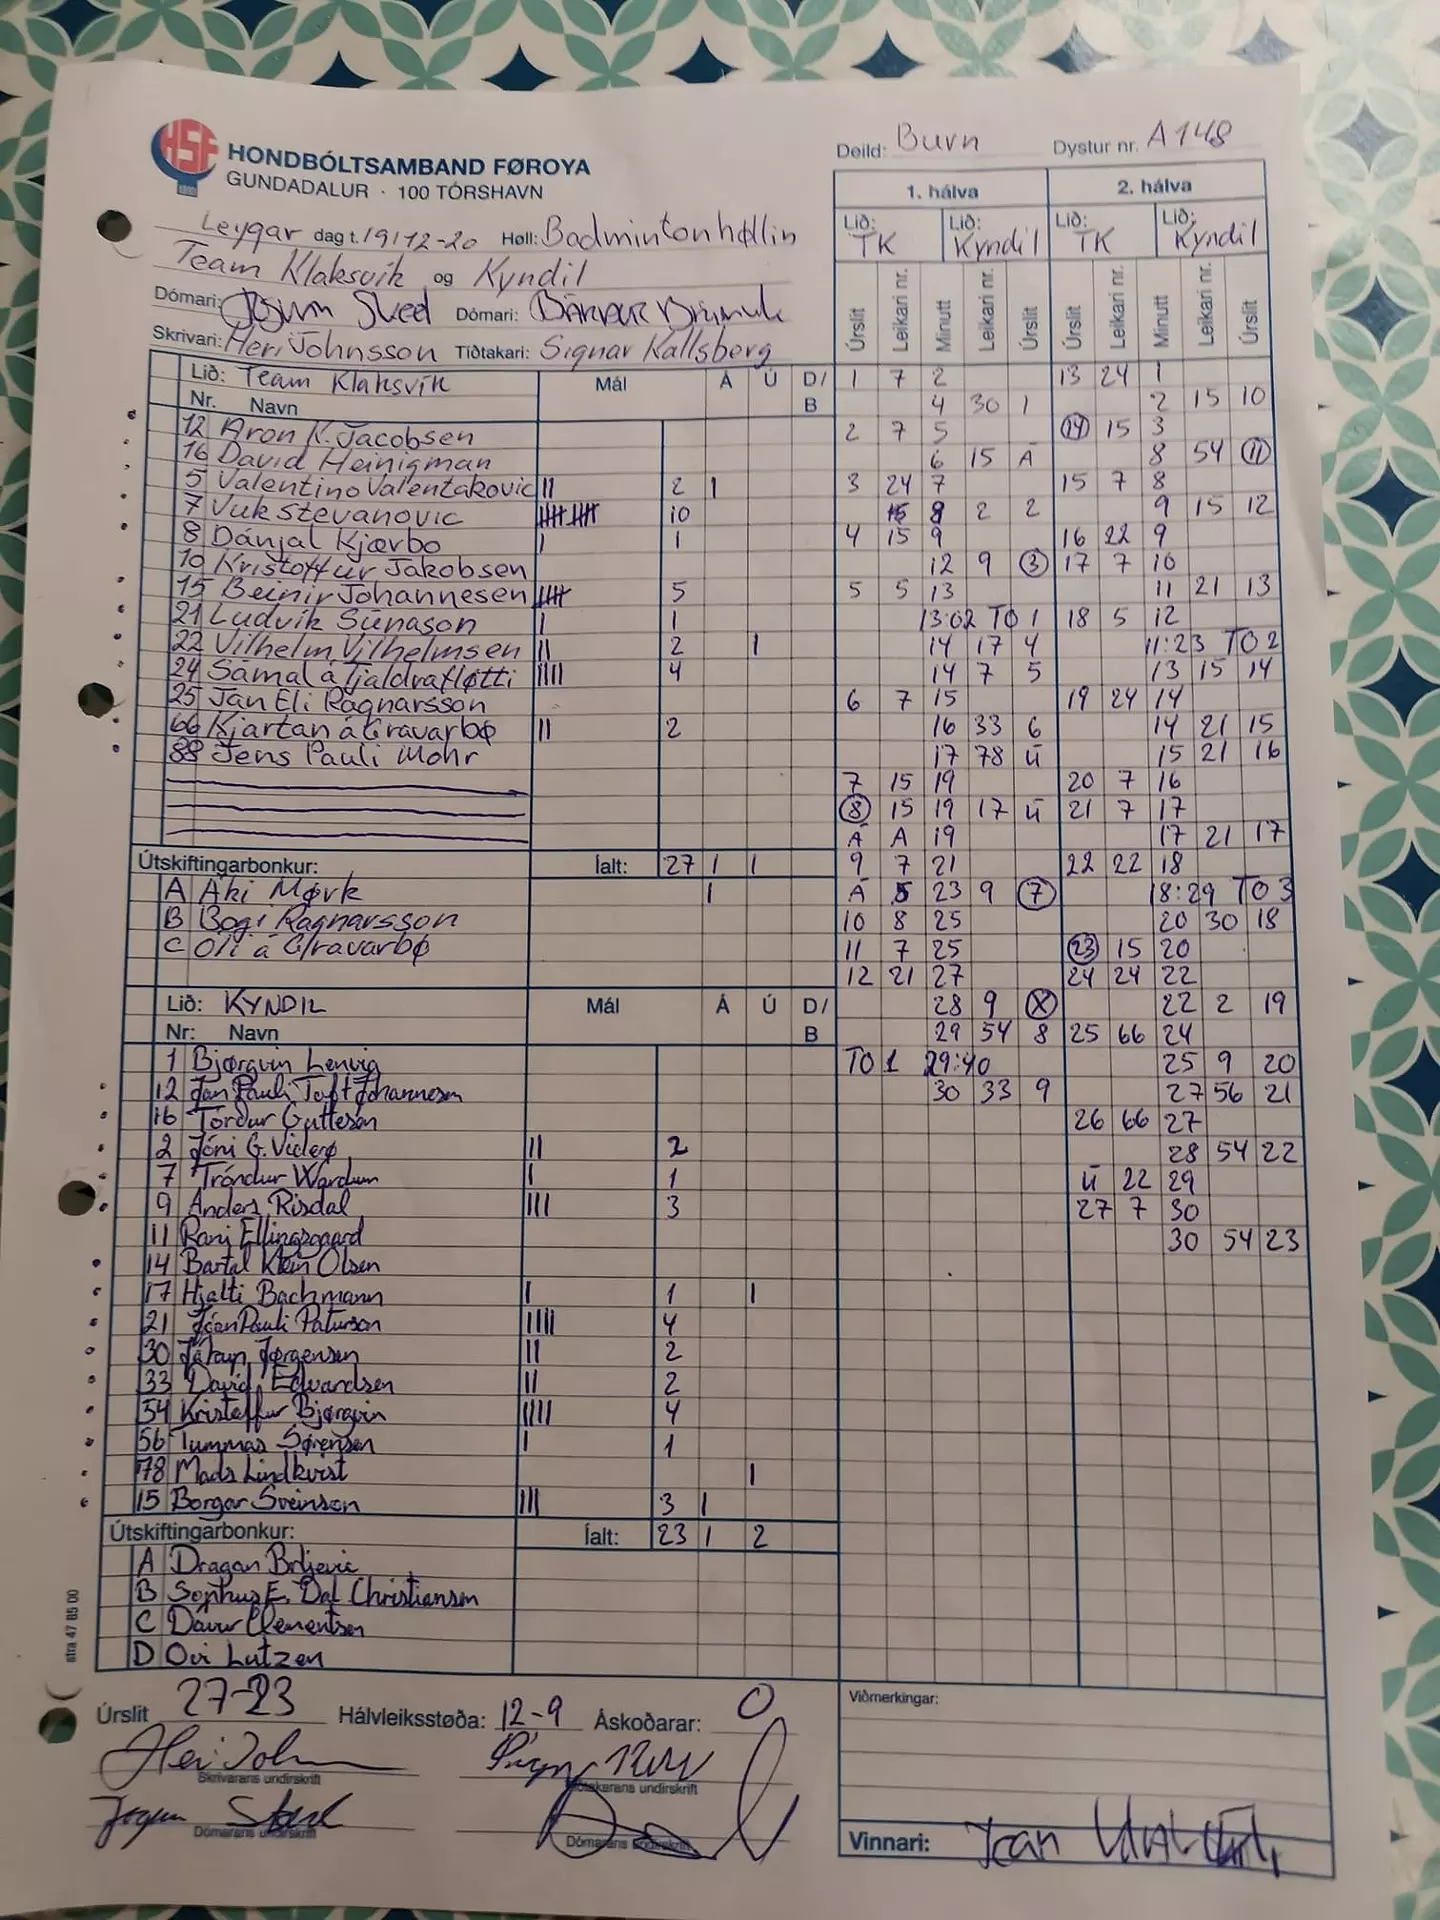 HSF
HONDBÓLTSAMBAND FØROYA
GUNDADALUR · 100 TÓRSHAVN
Deild: Burn Dystur nr. A148
Leygar dag t. 19/12-20 Høll: Badmintonhøllin
Team Klaksvík og Kyndil
Dómari: Dómari:
Skrivari: Heri Johnsson Tíðtakari: Signar Kallsberg
1. hálva 2. hálva
Lið: TK Lið: Kyndil Lið: TK Lið: Kyndil
Úrslit Leikari nr. Minutt Leikari nr. Úrslit Úrslit Leikari nr. Minutt Leikari nr. Úrslit
Lið: Team Klaksvík Mál Á Ú D/B
Nr. Navn
12 Aron K. Jacobsen
16 David Heinigman
5 Valentino Valentakovic II 2 1
7 Vuk Stevanovic 10
8 Dánjal Kjærbo I 1
10 Kristoffur Jakobsen
15 Beinir Johannesen 5
21 Ludvík Súnason I 1
22 Vilhelm Vilhelmsen II 2 1
24 Sámal á Tjaldrafløtti IIII 4
25 Jan Eli Ragnarsson
66 Kjartan á Gravarbø II 2
88 Jens Pauli Mohr
Útskiftingarbonkur: Íalt: 27 1 1
A Áki Mørk 1
B Bogi Ragnarsson
C Óli á Gravarbø
Lið: KYNDIL Mál Á Ú D/B
Nr: Navn
1 Bjørgvin Lenvig
12 Jan Pauli Toft Johannesen
16 Tórður Guttesen
2 Jóni G. Viderø II 2
7 Tróndur Wardum I 1
9 Anders Risdal III 3
11 Ranj Ellingsgaard
14 Bartal Klein Olsen
17 Hjalti Bachmann I 1 1
21 Jóan Pauli Paturson IIII 4
30 Jákup Jørgensen II 2
33 David Edvardsen II 2
54 Kristoffur Bjørgvin IIII 4
56 Tummas Sørensen I 1
78 Mads Lindkvist 1
15 Borgar Sveinson III 3 1
Útskiftingarbonkur: Íalt: 23 1 2
A Dragan Brljevic
B Sophus E. Dal Christiansen
C Dávur Clementsen
D Ovi Lutzen
1 7 2
4 30 1
2 7 5
6 15 Á
3 24 7
8 2 2
4 15 9
12 9 3
5 5 13
13:02 TO 1
14 17 4
14 7 5
6 7 15
16 33 6
17 78 Ú
7 15 19
8 15 19 17 Ú
Á A 19
9 7 21
Á 5 23 9 7
10 8 25
11 7 25
12 21 27
28 9 X
29 54 8
TO 1 29:40
30 33 9
13 24 1
2 15 10
14 15 3
8 54 11
15 7 8
9 15 12
16 22 9
17 7 10
11 21 13
18 5 12
11:23 TO 2
13 15 14
19 24 14
14 21 15
15 21 16
20 7 16
21 7 17
17 21 17
22 22 18
18:29 TO 3
20 30 18
23 15 20
24 24 22
22 2 19
25 66 24
25 9 20
27 56 21
26 66 27
28 54 22
Ú 22 29
27 7 30
30 54 23
Úrslit 27-23 Hálvleiksstøða: 12-9 Áskoðarar: 0
Skrivarans undirskrift Tíðtakarans undirskrift
Dómarans undirskrift Dómarans undirskrift
Viðmerkingar:
Vinnari:
stra 47 85 00